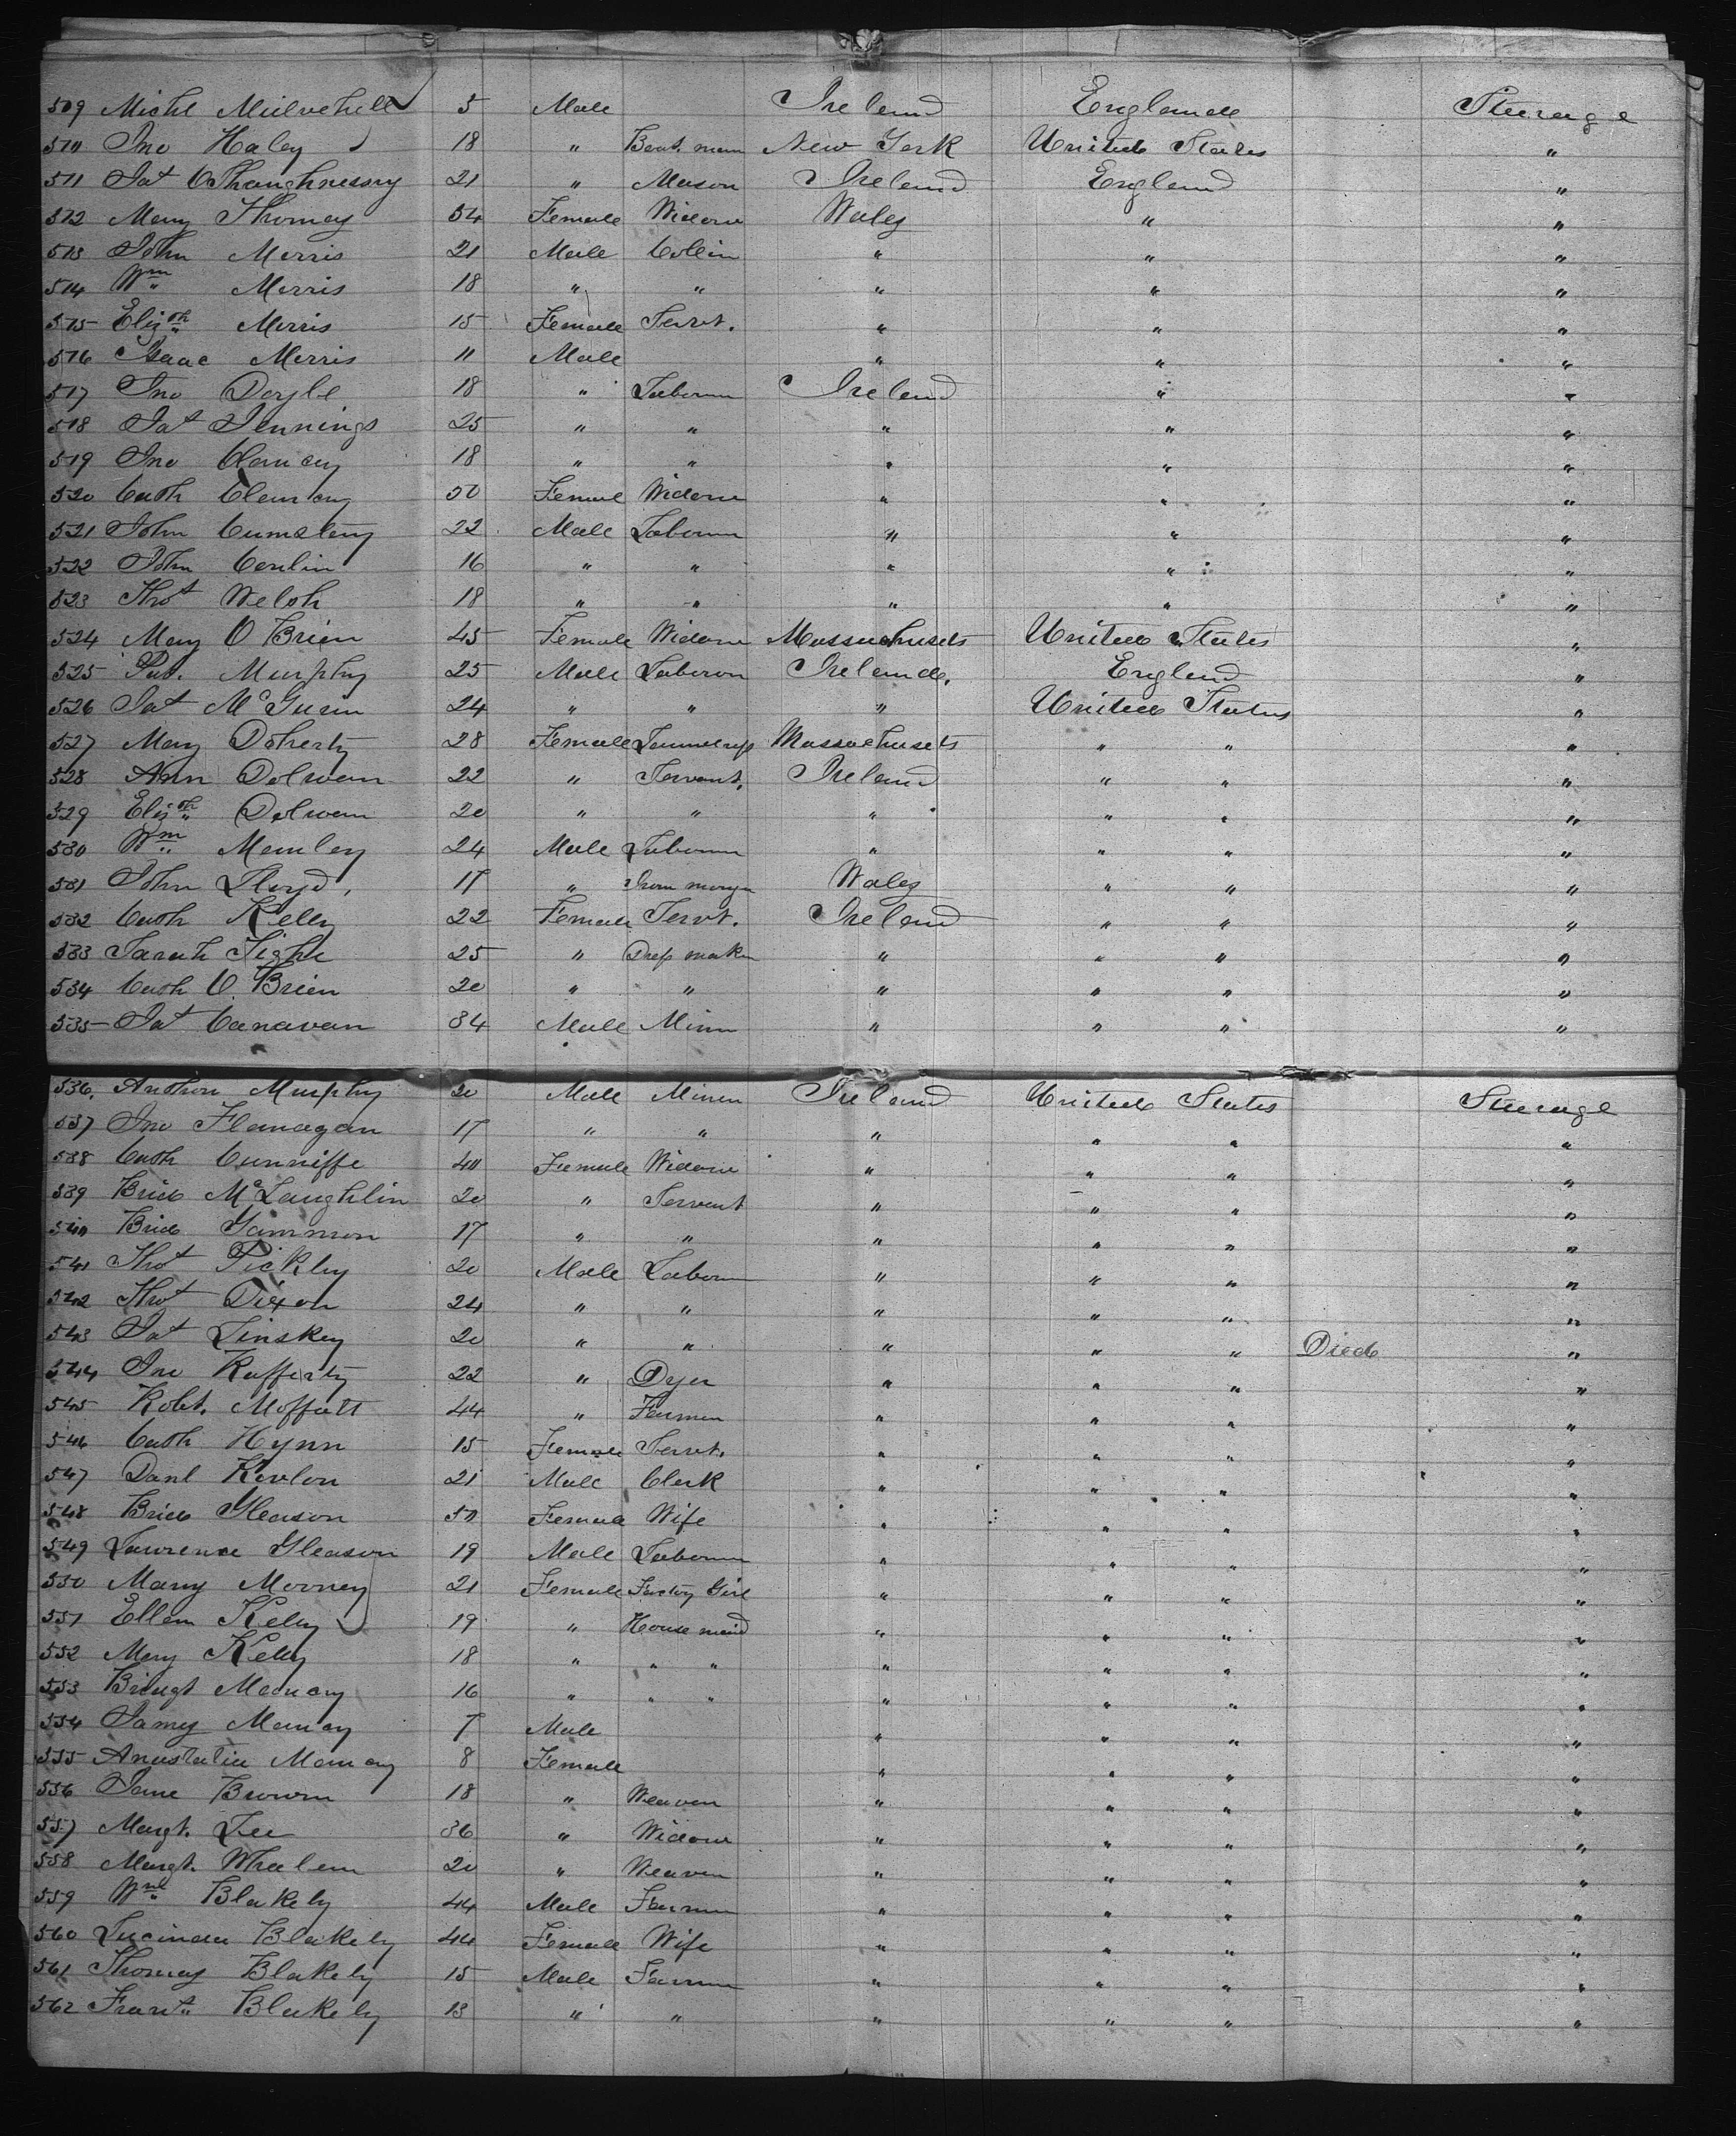 509 Michl Mulvehill 5 Male Ireland England Steerage
510 Jno Haley 18 " Boat man New York United States "
511 Pat O'Shaughnessy 21 " Mason Ireland England "
512 Mary Thomas 54 Female Widow Wales " "
513 John Morris 21 Male Collier " " "
514 Wm Morris 18 " " " " "
515 Elizth Morris 15 Female Servt. " " "
516 Isaac Morris 11 Male " " "
517 Jno Doyle 18 " Labourer Ireland " "
518 Pat Jennings 25 " " " " "
519 Jno Clancey 18 " " " " "
520 Cath Clancey 50 Female Widow " " "
521 John 22 Male Labourer " " "
522 John Conlin 16 " " " " "
523 Thos Welsh 18 " " " " "
524 Mary O Brien 45 Female Widow Massachusets United States "
525 Pat. Murphy 25 Male Labourer Ireland. England "
526 Pat 24 " " " United States "
527 Mary Doherty 28 Female Laundress Massachusets " " "
528 Ann Dolwan 22 " Servant. Ireland " " "
529 Elizth Dolwan 20 " " " " " "
530 Wm Manley 24 Male Labourer " " " "
531 John Lloyd, 17 " Iron monger Wales " " "
532 Cath Kelly 22 Female Servt. Ireland " " "
533 Sarah Tighe 25 " Dress maker " " " "
534 Cath O. Brien 20 " " " " " "
535 Pat Canavan 34 Male Miner " " " "
536. Anthon Murphy 20 Male Miner Ireland United States Steerage
537 Jno Flanagan 17 " " " " " "
538 Cath Cunniffe 40 Female Widow " " " "
539 Brid McLaughlin 20 " Servant " " " "
540 Brid Gammon 17 " " " " " "
541 Thos Pickley 20 Male Labourer " " " "
542 Thos Dixon 24 " " " " " "
543 Pat Linskey 20 " " " " " Died "
544 Jno Rafferty 22 " Dyer " " " "
545 Robt. Moffatt 44 " Farmer " " " "
546 Cath Hynn 15 Female Servt. " " " "
547 Danl Kevlon 21 Male Clerk " " " "
548 Brid Gleason 50 Female Wife " " " "
549 Lawrence Gleason 19 Male Labourer " " " "
550 Mary Mooney 21 Female Factory Girl " " " "
551 Ellen Kelly 19 " House maid " " " "
552 Mary Kelly 18 " " " " " " "
553 Bridgt 16 " " " " " " "
554 James 7 Male " " " "
555 Anastatia 8 Female " " " "
556 Jane Brown 18 " Weaver " " " "
557 Margt. Lee 36 " Widow " " " "
558 Margt. Whalen 20 " Weaver " " " "
559 Wm Blakely 44 Male Farmer " " " "
560 Lucinda Blakely 44 Female Wife " " " "
561 Thomas Blakely 15 Male Farmer " " " "
562 Blakely 13 " " " " " "